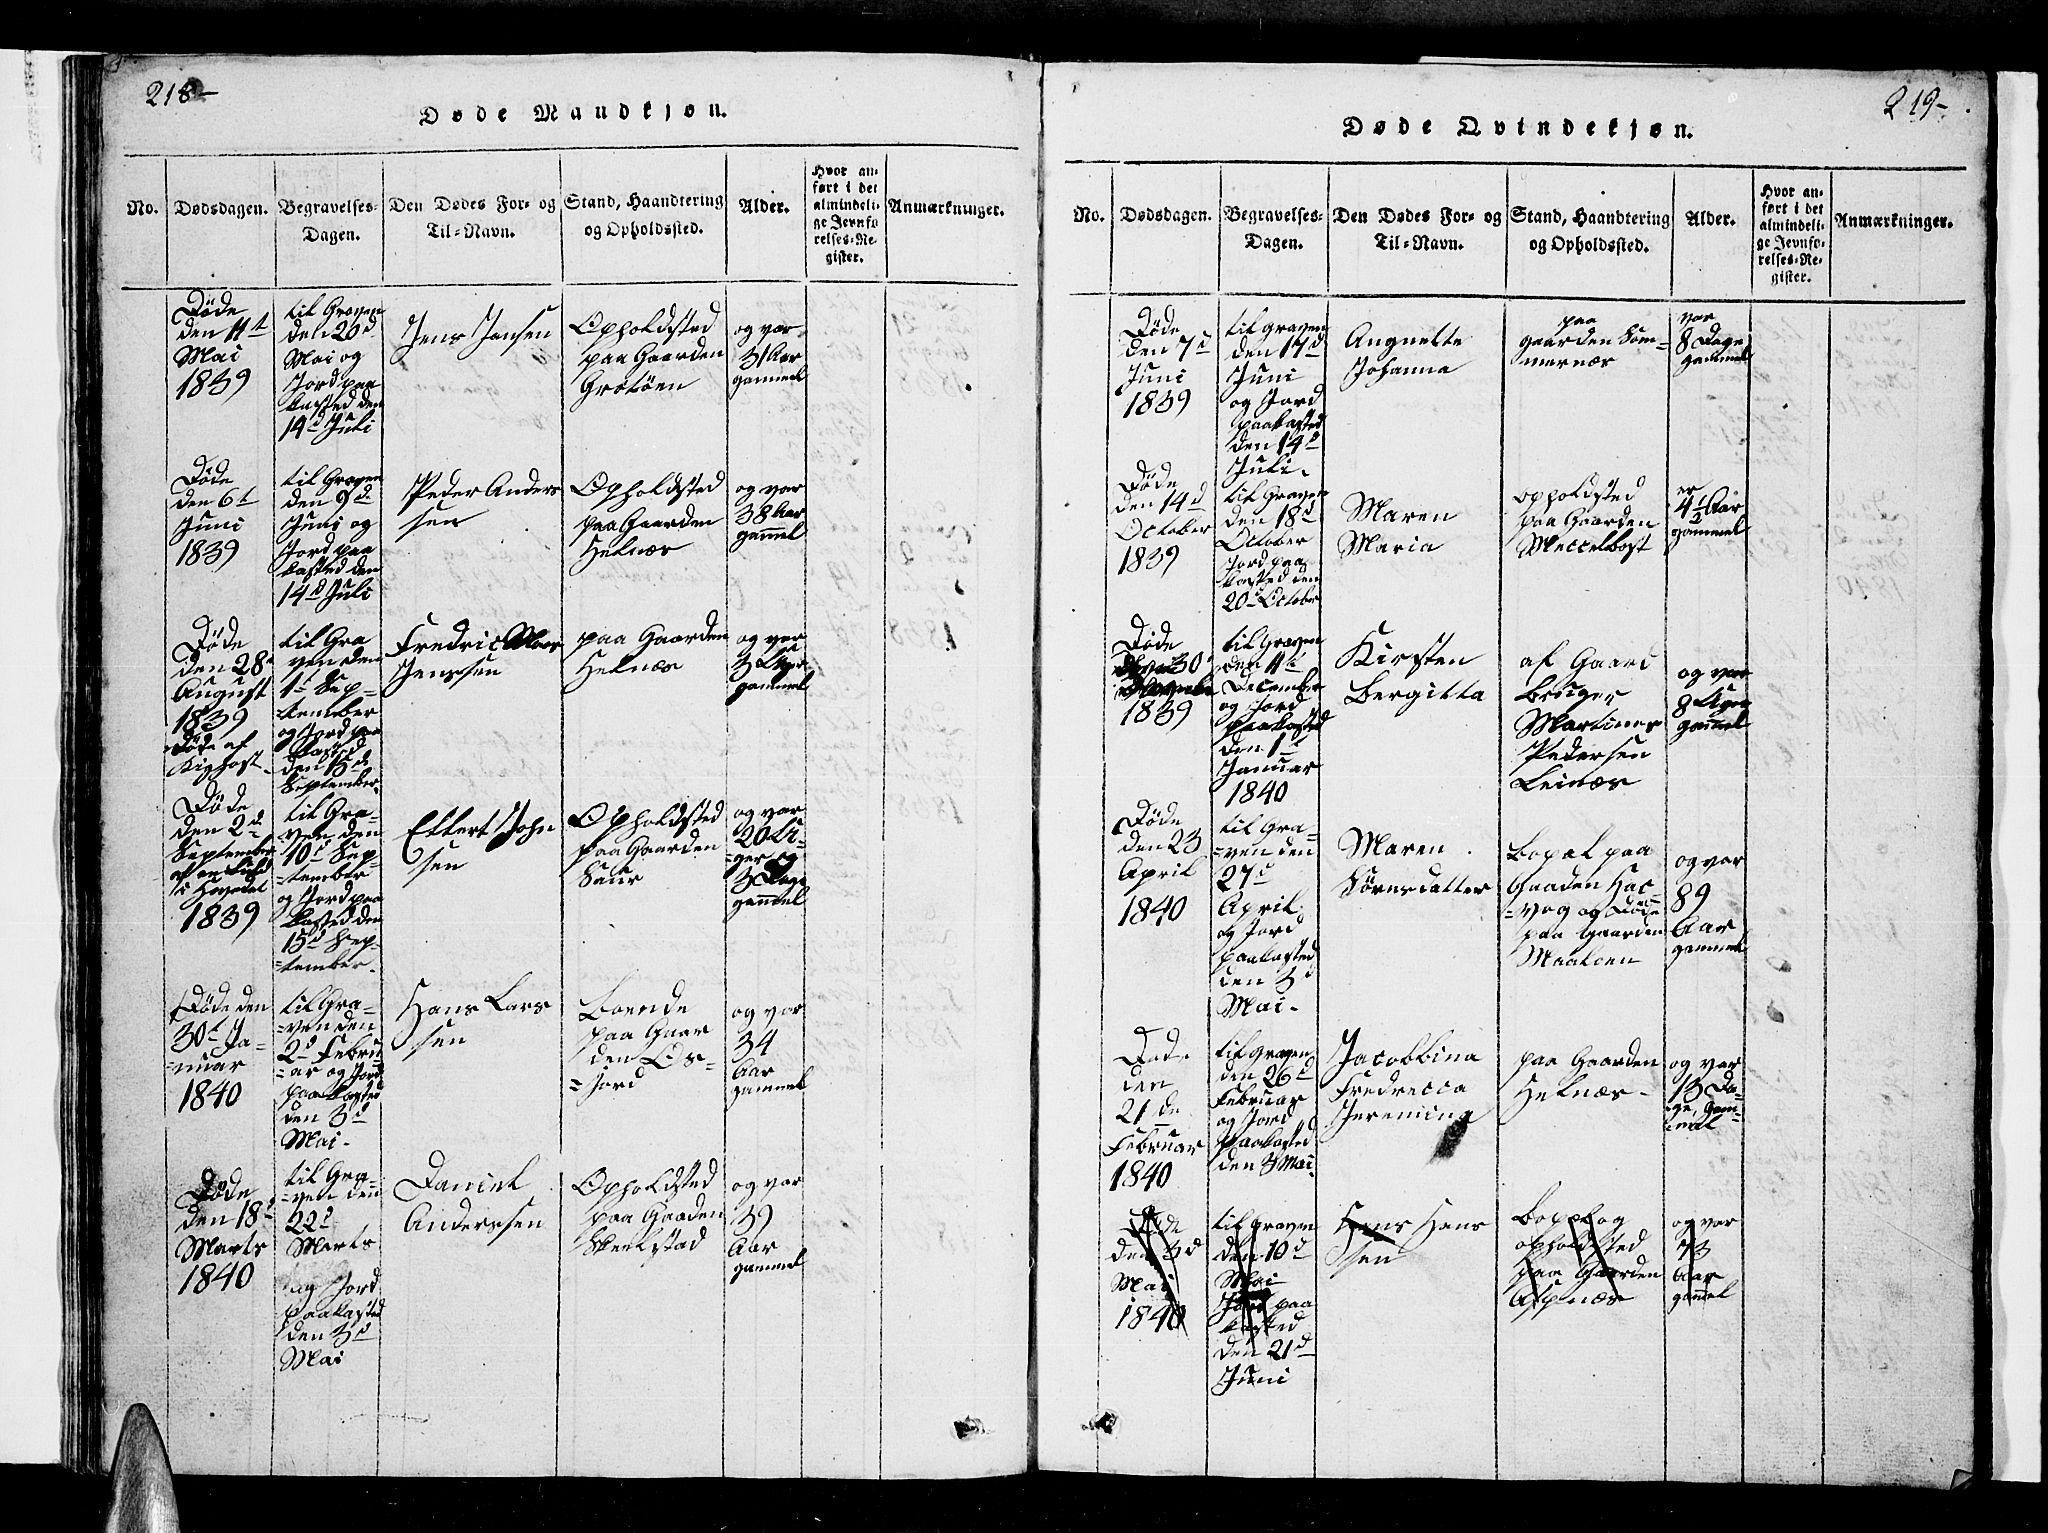 218-
Døde Mandkjøn.
No.
Dødsdagen.
Begravelses-
Dagen.
Den Dødes For- og
Til-Navn.
Stand, Haandtering
og Opholdssted.
Alder.
Hvor an-
ført i det
almindeli-
ge Jevnfø-
relses-Re-
gister.
Anmærkninger.
Døde
den 11t
Mai
1839
til Graven
den 20d
Mai og
Jord paa
kasted den
14d Juli
Jens Jansen
Opholdsted
paa Gaarden
Grötöen
og var
31 Aar
gammel
Døde
den 6t
Juni
1839
til Graven
den 9de
Juni og
Jord paa
kasted den
14d Juli
Peder Anders
sen
Opholdsted
paa Gaarden
Helnæs
og var
38 Aar
gammel
Døde
den 28
August
1839
Döde af
Kighost
til Gra
ven den
1t Sep-
tember
og Jord paa
kasted
den 15d
September
Fredric
Jenssen
paa Gaarden
Helnæs
og var
3 Uger
gammel
Døde
den 2d
September
1839
til Gra-
ven den
10d Sep-
=tember
og Jord paa
kasted den
15d Sep-
=tember.
Ellert John
sen
Opholdsted
paa Gaarden
Saur
og var
20 Ui-
=ger og
3 Dage
gammel
Døde den
30t Ja-
=nuar
1840
til Gra-
=ven den
2d Febru
=ar og Jord
paakasted
den 3d
Mai-
Hans Lars
sen
boende
paa Gaar
den Øs-
=jord
og var
34
Aar
gammel
Døde
den 18d
Marts
1840
til Gra-
=ven den
22d
Marts
og Jord
paakasted
den 3d
Mai
Daniel
Anderssen
Opholdsted
paa Gaaden
Skeelstad
og var
39
Aar
gammel
219-
Døde Qvindekjøn.
No.
Dødsdagen.
Begravelses-
Dagen.
Den Dødes For- og
Til-Navn.
Stand, Haandtering
og Opholdssted.
Alder.
Hvor an-
ført i det
almindeli-
ge Jevnfø-
relses-Re-
gister.
Anmærkninger.
Døde
den 7d
Juni
1839
til graven
den 17d
Juni
og Jord
paakasted
den 14d
Juli.
Angnette
Johanna
paa
gaarden Som-
mernæs
var
8 Dage
gammel
Døde
den 14d
October
1839
til Graven
den 18d
October
Jord paa
kasted den
20d October
Maren
Maria
opholdsted
paa Gaarden
er
4½ Aar
gammel
Døde
30
1839
til Graven
den 11te
December
og Jord
paakasted
den 1t
Januar
1840
Kirsten
Bergitta
af Gaard
bruger
Martines
Pedersen
Leinæs
og var
8 Uger
gammel
Døde
den 23
April
1840
til Gra-
=ven den
27d
April
og Jord
paakasted
den 3d
Mai-
Maren
Sørnsdatter
bopæl paa
Gaaden
og Døde
paa Gaarden
og var
89
Aar
gammel
Døde
den
21de
Februar
1840
til graven
den 26d
Februar
og Jord
paakasted
den 3 Mai
Jacobbina
Fredrecca
Jeremina
paa Gaarden
Helnæs-
og var
13 Da-
=ge, Gam-
=mel
Døde
den 3d
Mai
1840
til Graven
den 10d
Mai
Jord paa
kasted
den 21d
Juni
Hans Hans
sen
bopæl og
opholdsted
paa Gaarden
Aspnæs
og var
73
Aar
gammel